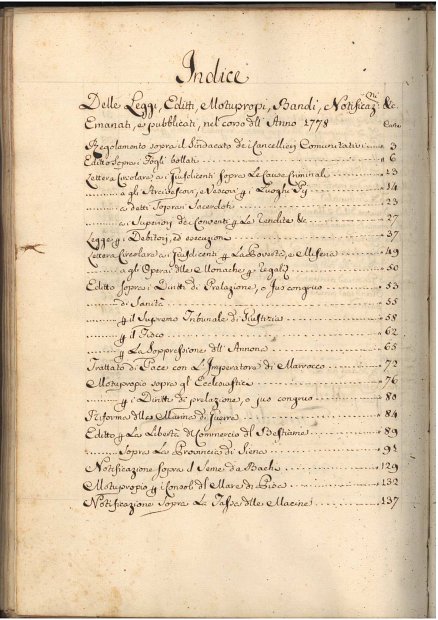 Indice
Delle Leggi, Editti, Motupropi, Bandi, Notificaz.ni &c.
Emanati, e pubblicati, nel corso dell' Anno 1778 Carte
Regolamento sopra il Sindacato de i Cancellieri Comunitativi 3
Editto sopra i Fogli bollati 6
Lettera Circolare a i Jusdicenti sopra Le Cause Criminali 13
a gli Arcivescovi, e Vescovi p i Luoghi Pij 14
a detti Sopran Sacerdoti 23
a i Superiori de i Conventi p La Vendite &c 27
Legge p i Debitori, ed esecuzione 37
Lettera Circolare a i Jusdicenti p La Povertà, e Miseria 49
a gli Operai delle Monache p Regali 50
Editto sopra i Diritti di Prelazione, o Jus congruo 53
di Sanità 55
p il Supremo Tribunale di Giustizia 58
p il Fisco 62
p La Soppressione dell' Annona 65
Trattato di Pace con L'Imperatore di Marrocco 72
Motupropio sopra gl' Ecclesiastici 76
p i Diritti di prelazione, o jus congruo 80
Riforma della Marina di Guerra 84
Editto p La Libertà di Commercio del Bestiame 89
sopra La Provincia di Siena 91
Notificazione sopra il Seme da Bachi 129
Motupropio p i Consoli del Mare di Pisa 132
Notificazione sopra La Tassa delle Macine 137